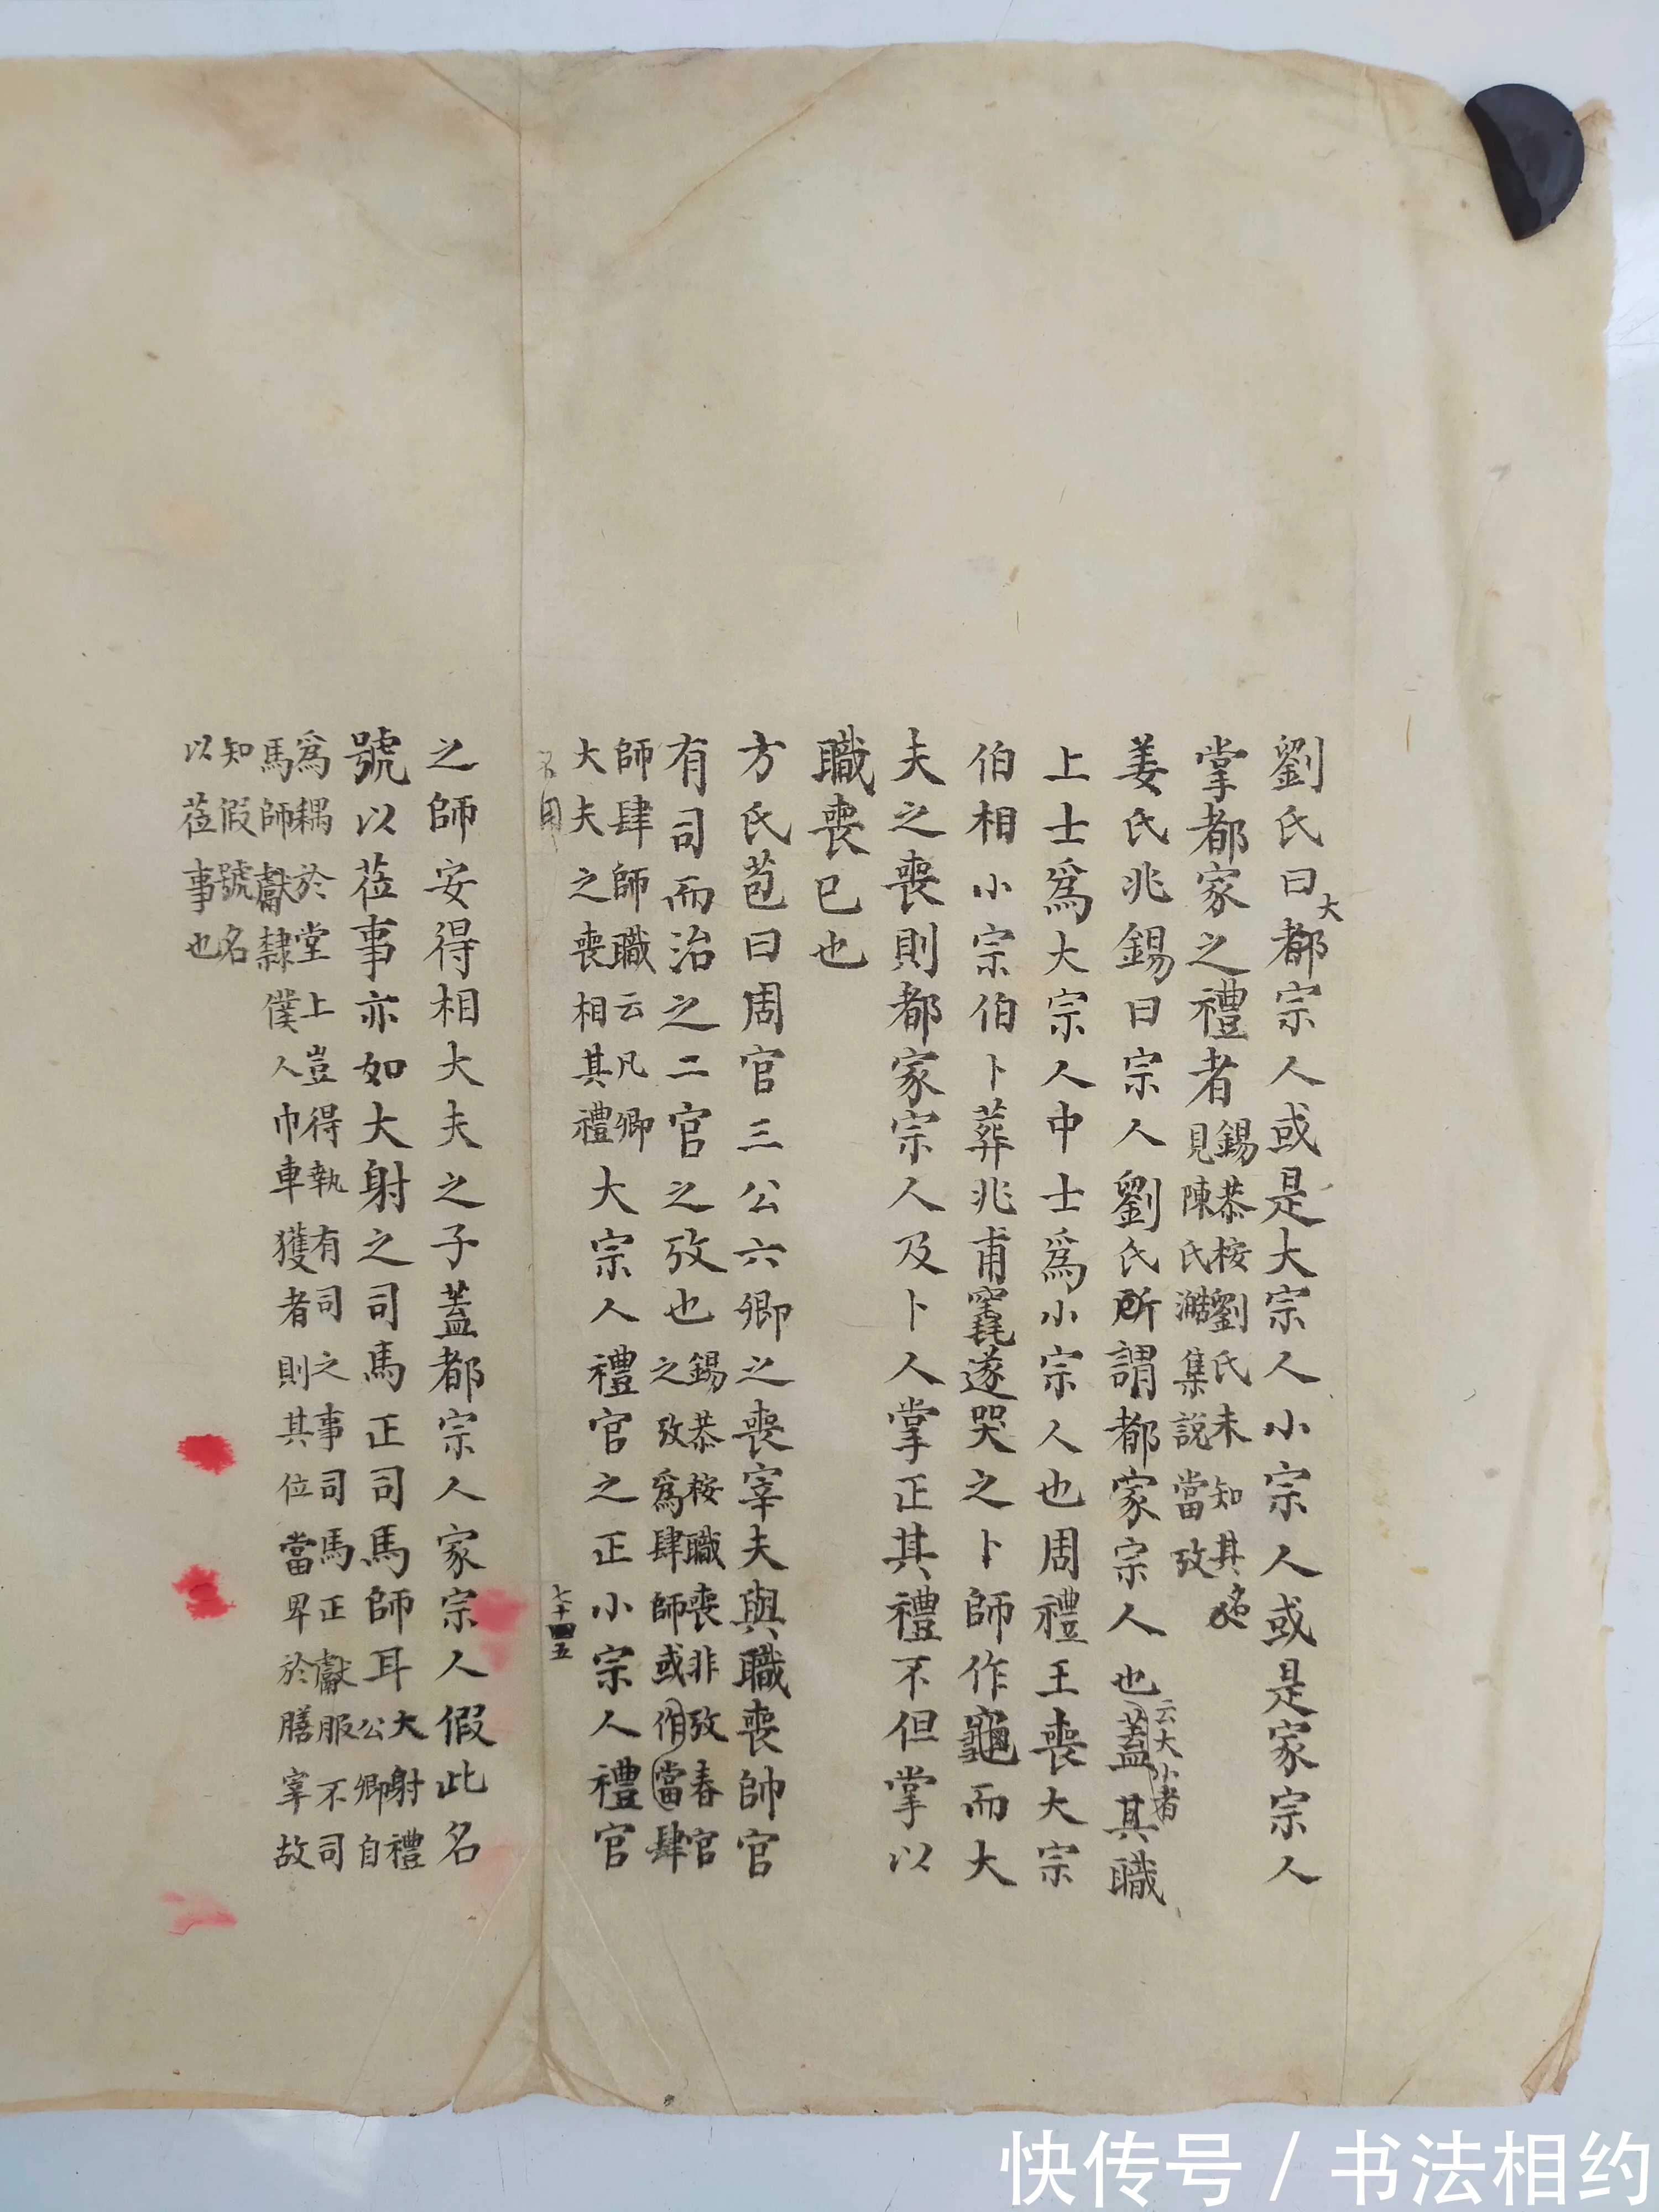 劉氏曰大都宗人或是大宗人小宗人或是家宗人
掌都家之禮者錫恭桉劉氏未知其名
見陳氏澔集說當攷
姜氏兆錫曰宗人劉氏所謂都家宗人也云大小者蓋其職
上士爲大宗人中士爲小宗人也周禮王喪大宗
伯相小宗伯卜葬兆甫竁遂哭之卜師作龜而大
夫之喪則都家宗人及卜人掌正其禮不但掌以
職喪已也
方氏苞曰周官三公六卿之喪宰夫與職喪帥官
有司而治之二官之攷也錫恭桉職喪非攷春官
之攷爲肆師或作當肆
師肆師職云凡卿
大夫之喪相其禮大宗人禮官之正小宗人禮官
七十四五
之師安得相大夫之子蓋都宗人家宗人假此名
號以莅事亦如大射之司馬正司馬師耳大射禮
公卿自
爲耦於堂上豈得執有司之事司馬正獻服不司
馬師獻隸僕人巾車獲者則其位當卑於膳宰故
知假號名
以莅事也
快传号/书法相约